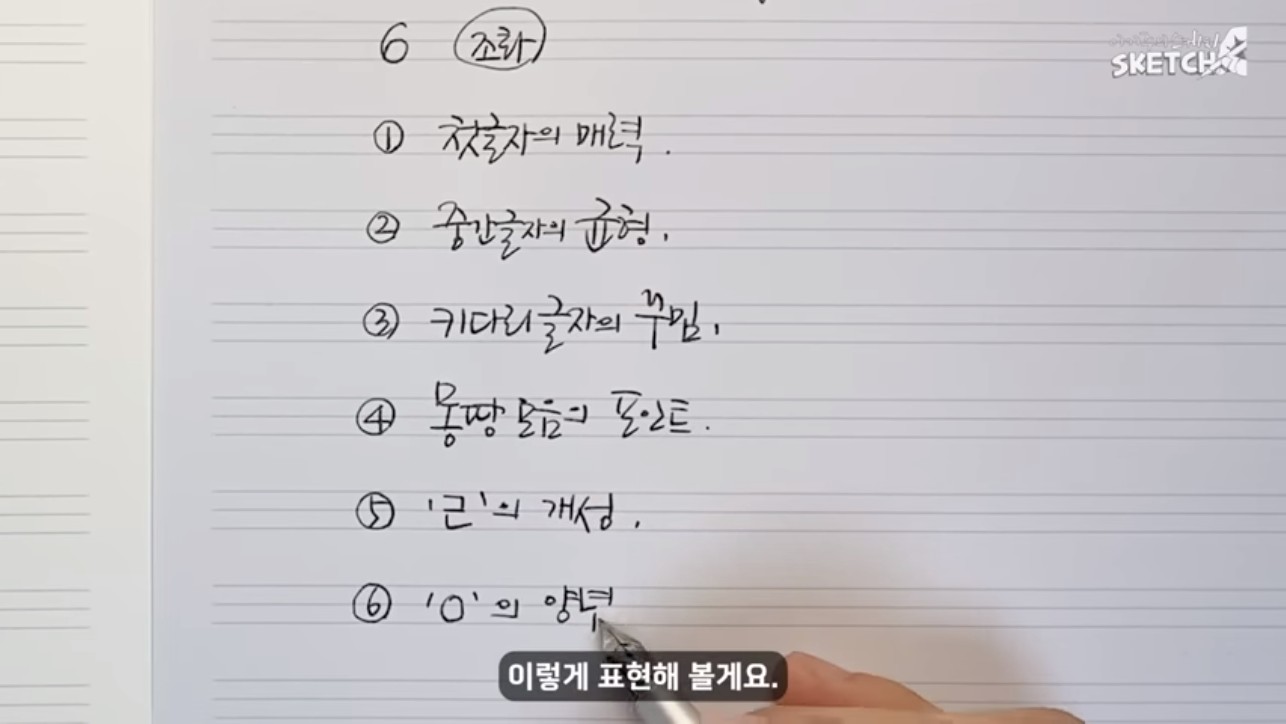 SKETCH
6 조화
① 첫글자의 매력.
② 중간글자의 균형.
③ 키다리글자의 꾸밈.
④ 몽땅 모음의 포인트.
⑤ 'ㄹ'의 개성.
⑥ 'ㅇ'의 양녀
이렇게 표현해 볼게요.